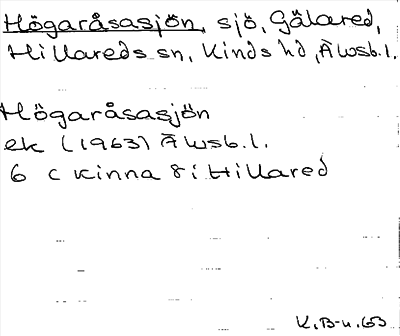 Högaråsasjön, sjö, Gälared,
Hillareds sn, Kinds hd, Älvsb. l.
Högaråsasjön
ek (1963) Älvsb. l.
6 c Kinna 8 i Hillared
K. B-n. 63